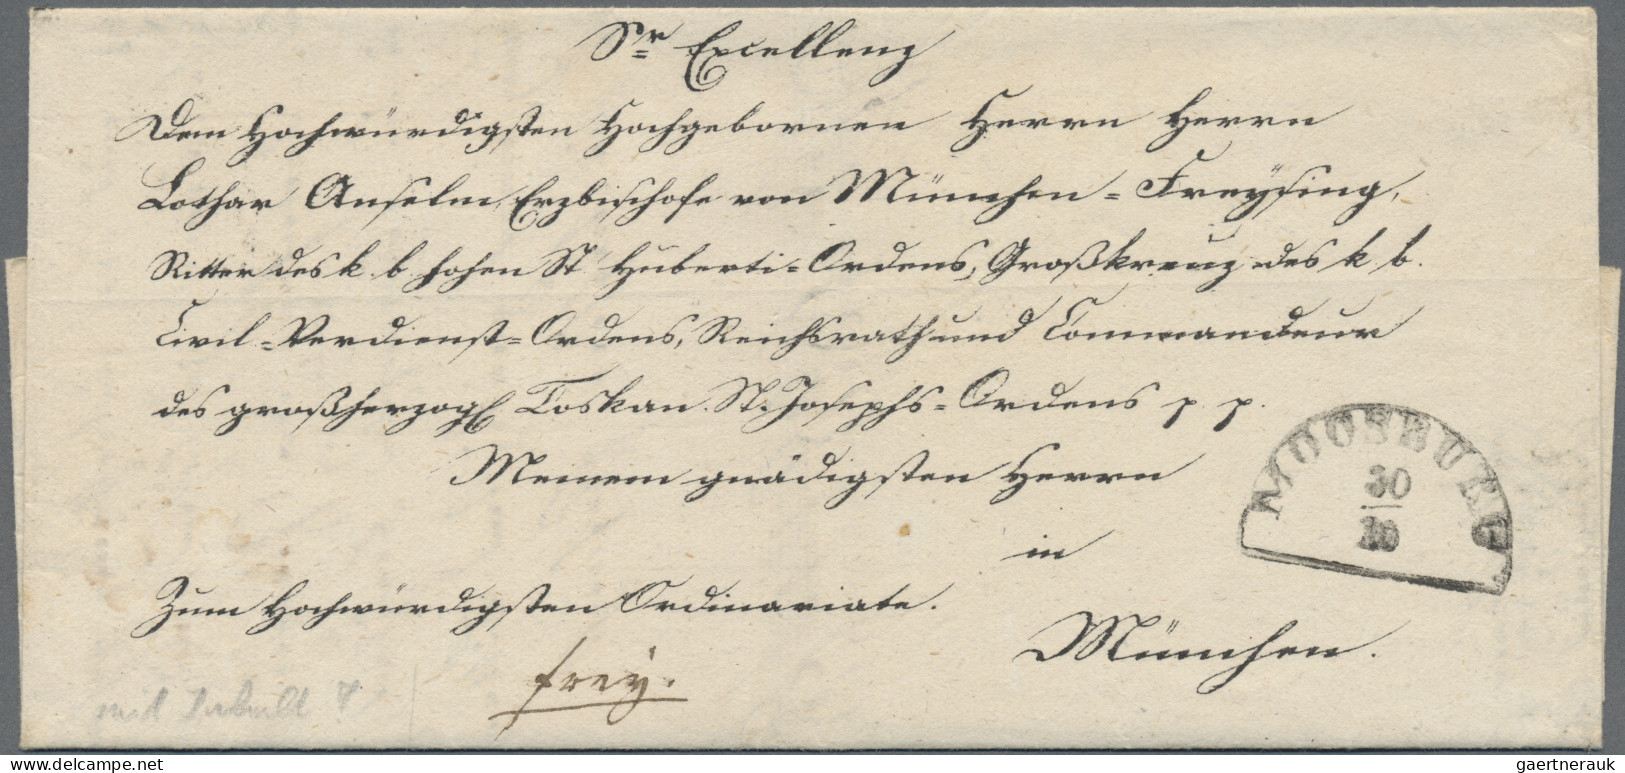 Sr Excellenz
Dem Hochwürdigsten Hochgebornen Herrn Herrn
Lothar Anselm, Erzbischofe von München-Freysing,
Ritter des k. b. hohen St. Huberti-Ordens, Großkreuz des k. b.
Civil-Verdienst-Ordens, Reichsrath und Commandeur
des großherzogl. Toskan. St. Josephs-Ordens p. p.
Meinem gnädigsten Herrn
in
München.
Zum Hochwürdigsten Ordinariate.
frey.
MOOSBURG
30
10
mit Inhalt
www.delcampe.net
gaertnerauk